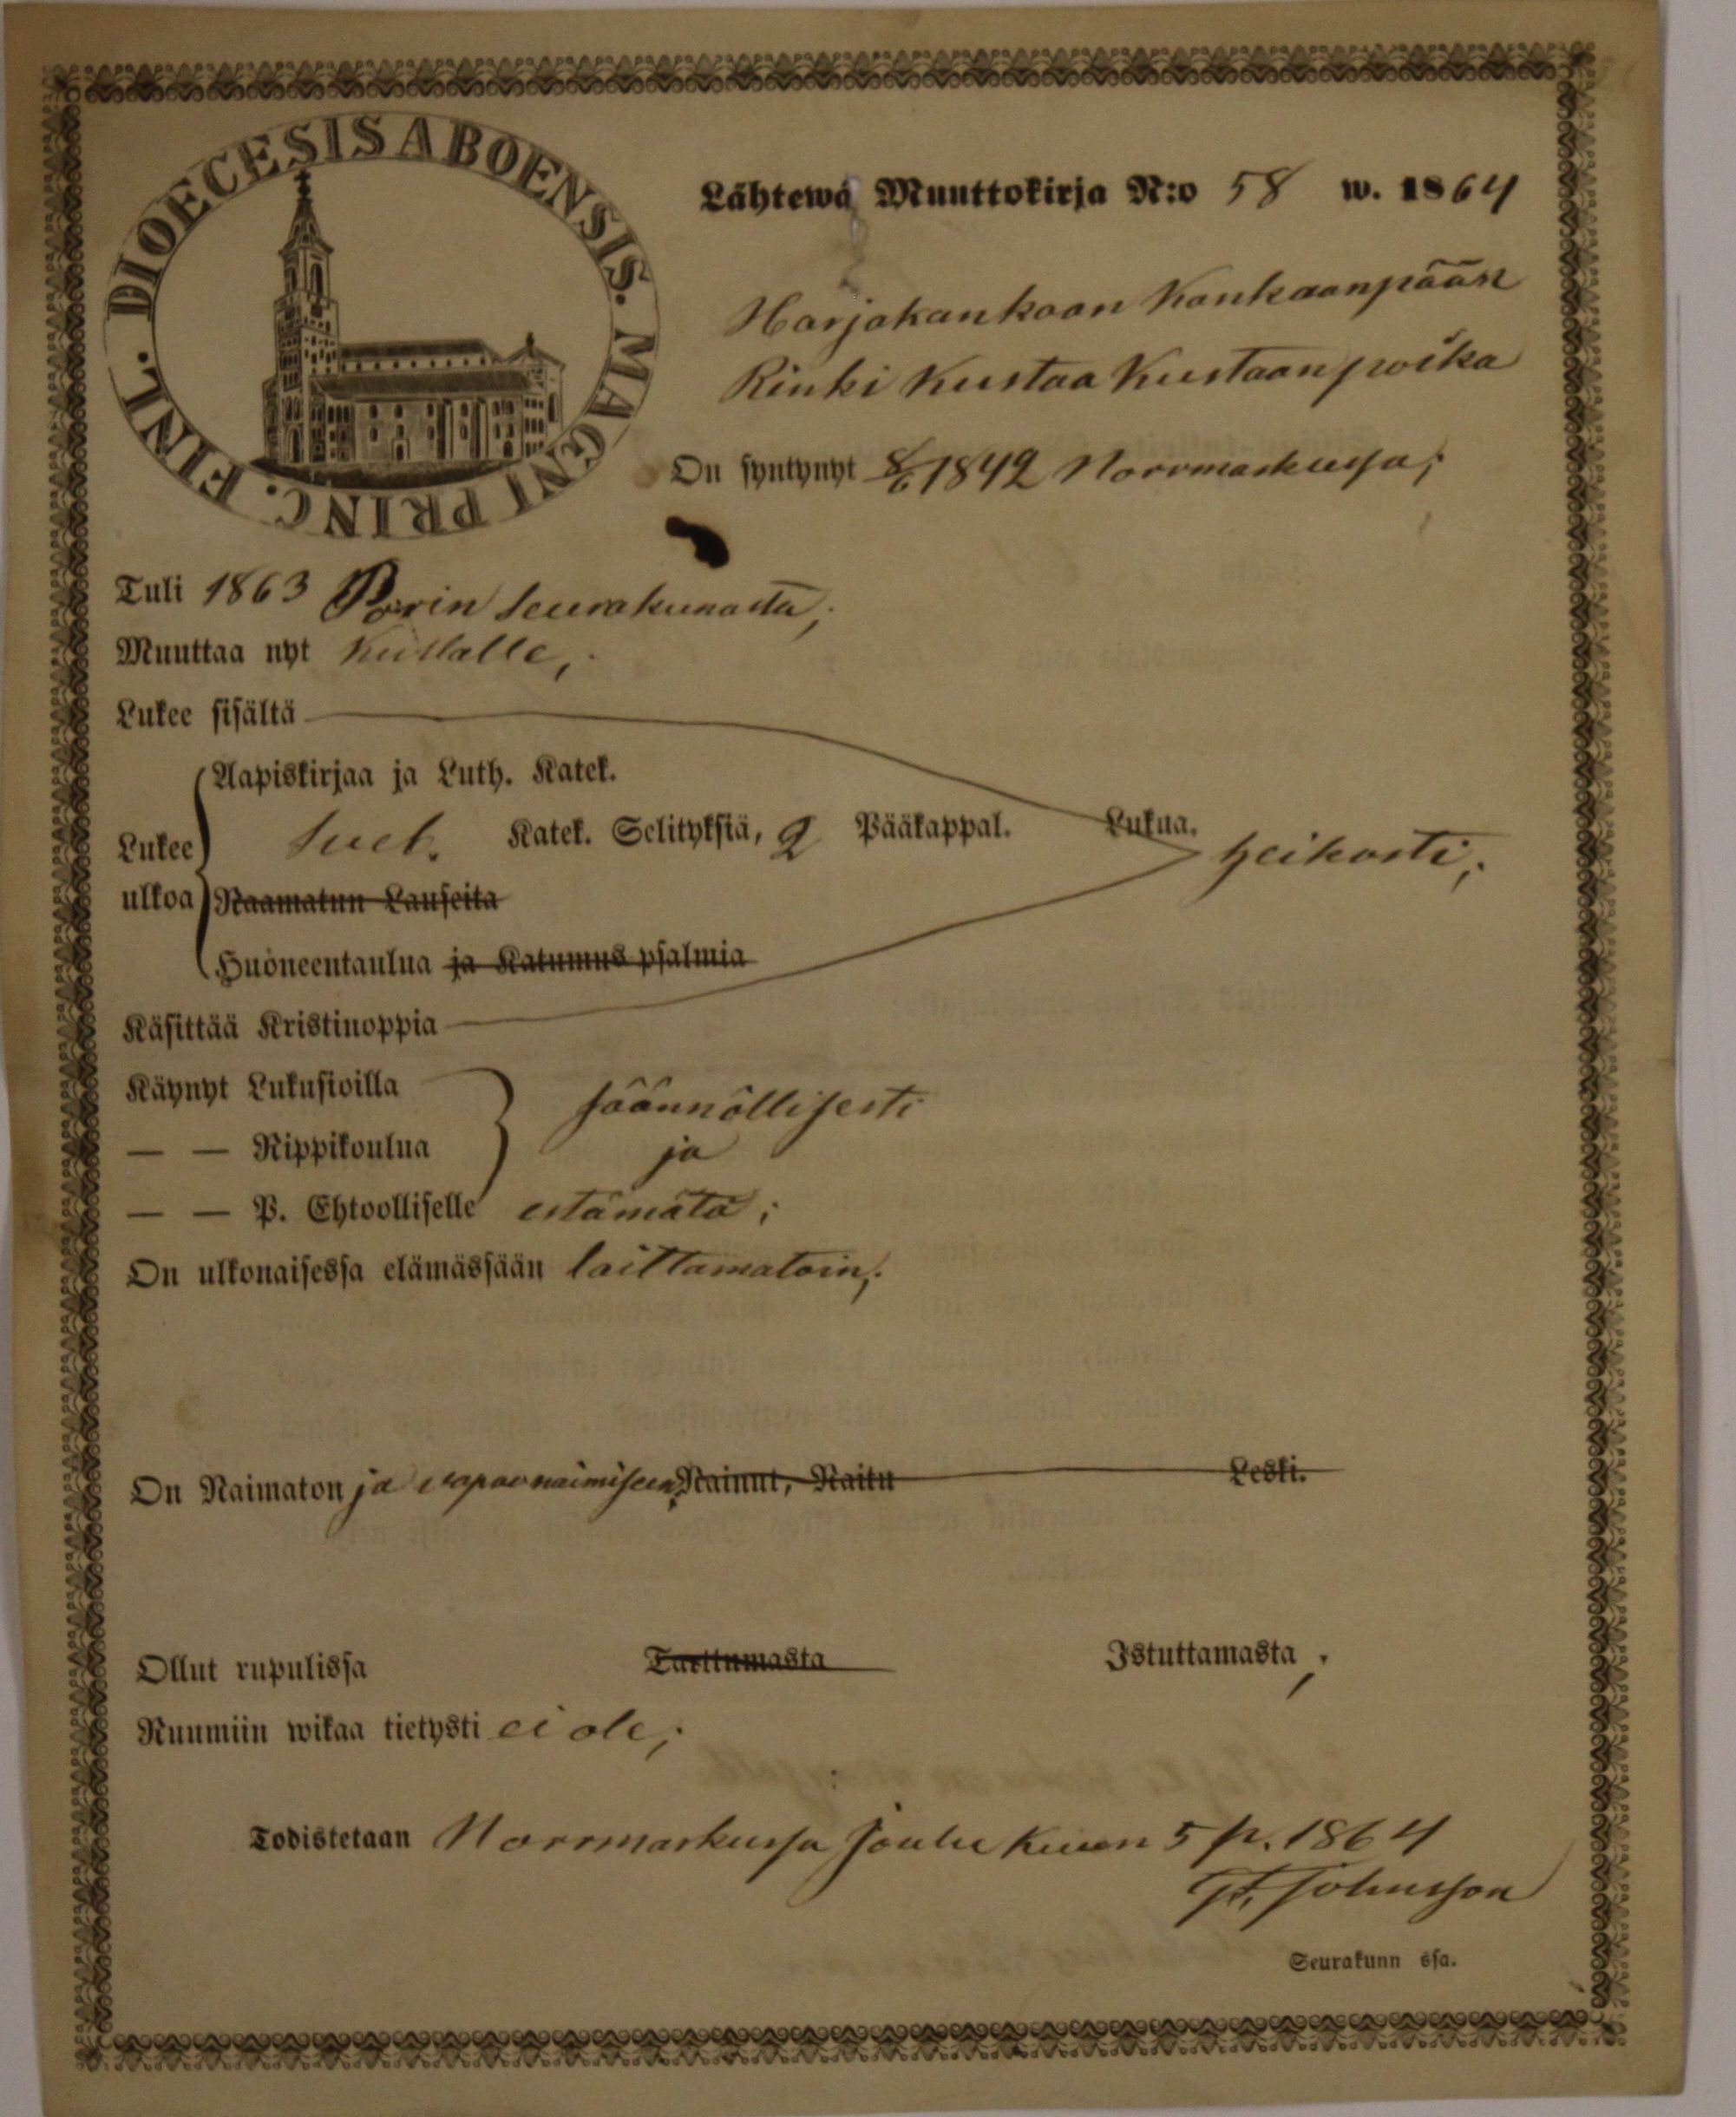 DIOECESIS ABOENSIS. MAGNI PRINC. FINL.
Lähtewä Muuttokirja N:o 58 w. 1864
Harjakankaan Kankaanpään
Rinki Kustaa Kustaanpoika
On syntynyt 8/6 1842 Norrmarkussa;
Tuli 1863 Porin Seurakunasta;
Muuttaa nyt Kullalle;
Lukee sisältä
Aapiskirjaa ja Luth. Katek.
Lukee ulkoa Sveb. Katek. Selityksiä, 2 Pääkappal. Lukua. heikosti;
Raamatun Lauseita
Huoneentaulua ja Katumus psalmia
Käsittää Kristinoppia
Käynyt Lukusioilla säännöllisesti
— — Rippikoulua ja
— — P. Ehtoolliselle estämätä;
On ulkonaisessa elämässään laittamatoin;
On Naimaton ja vapaa naimiseen; Nainut, Naitu Leski.
Ollut rupulissa Tarttumasta Istuttamasta;
Ruumiin wikaa tietysti ei ole;
Todistetaan Norrmarkussa Joulu Kuun 5 p. 1864
Johnsson
Seurakunn ssa.